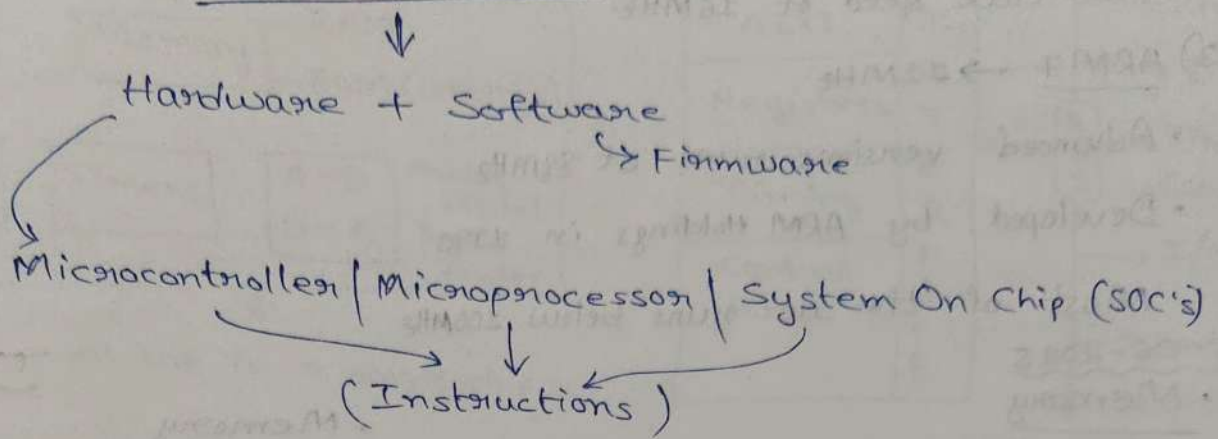 Hardware + Software
Firmware
Microcontroller | Microprocessor | System On Chip (SOC's)
(Instructions)